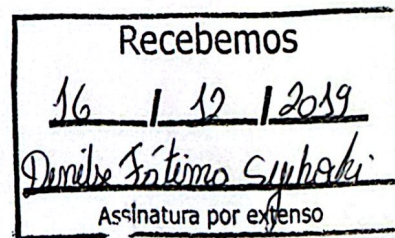 Recebemos
16 / 12 / 2019
Denilse Fátima
Assinatura por extenso